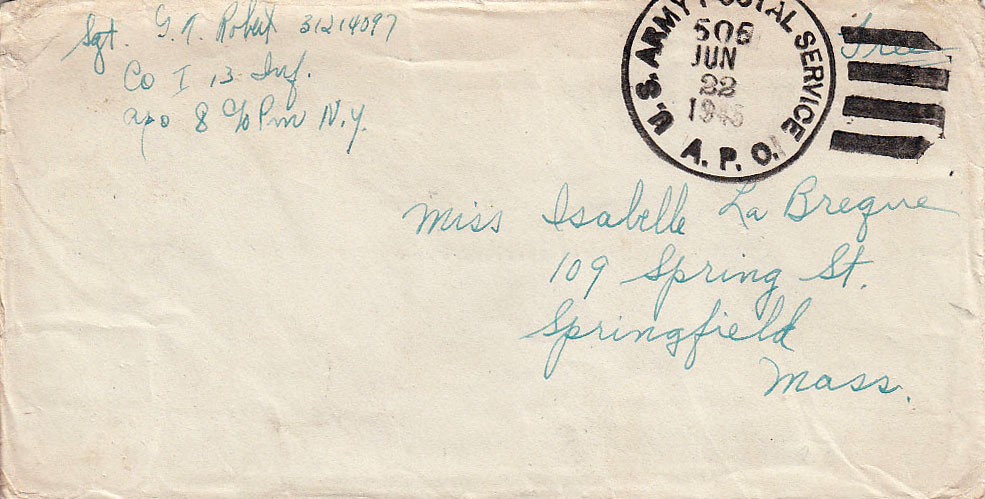 Sgt. G. N. Robert 31214097
Co I 13 Inf.
apo 8 c/o Pm N.Y.
U.S. ARMY POSTAL SERVICE
A.P.O.
JUN
22
1945
Free
Miss Isabelle La Breque
109 Spring St.
Springfield
Mass.